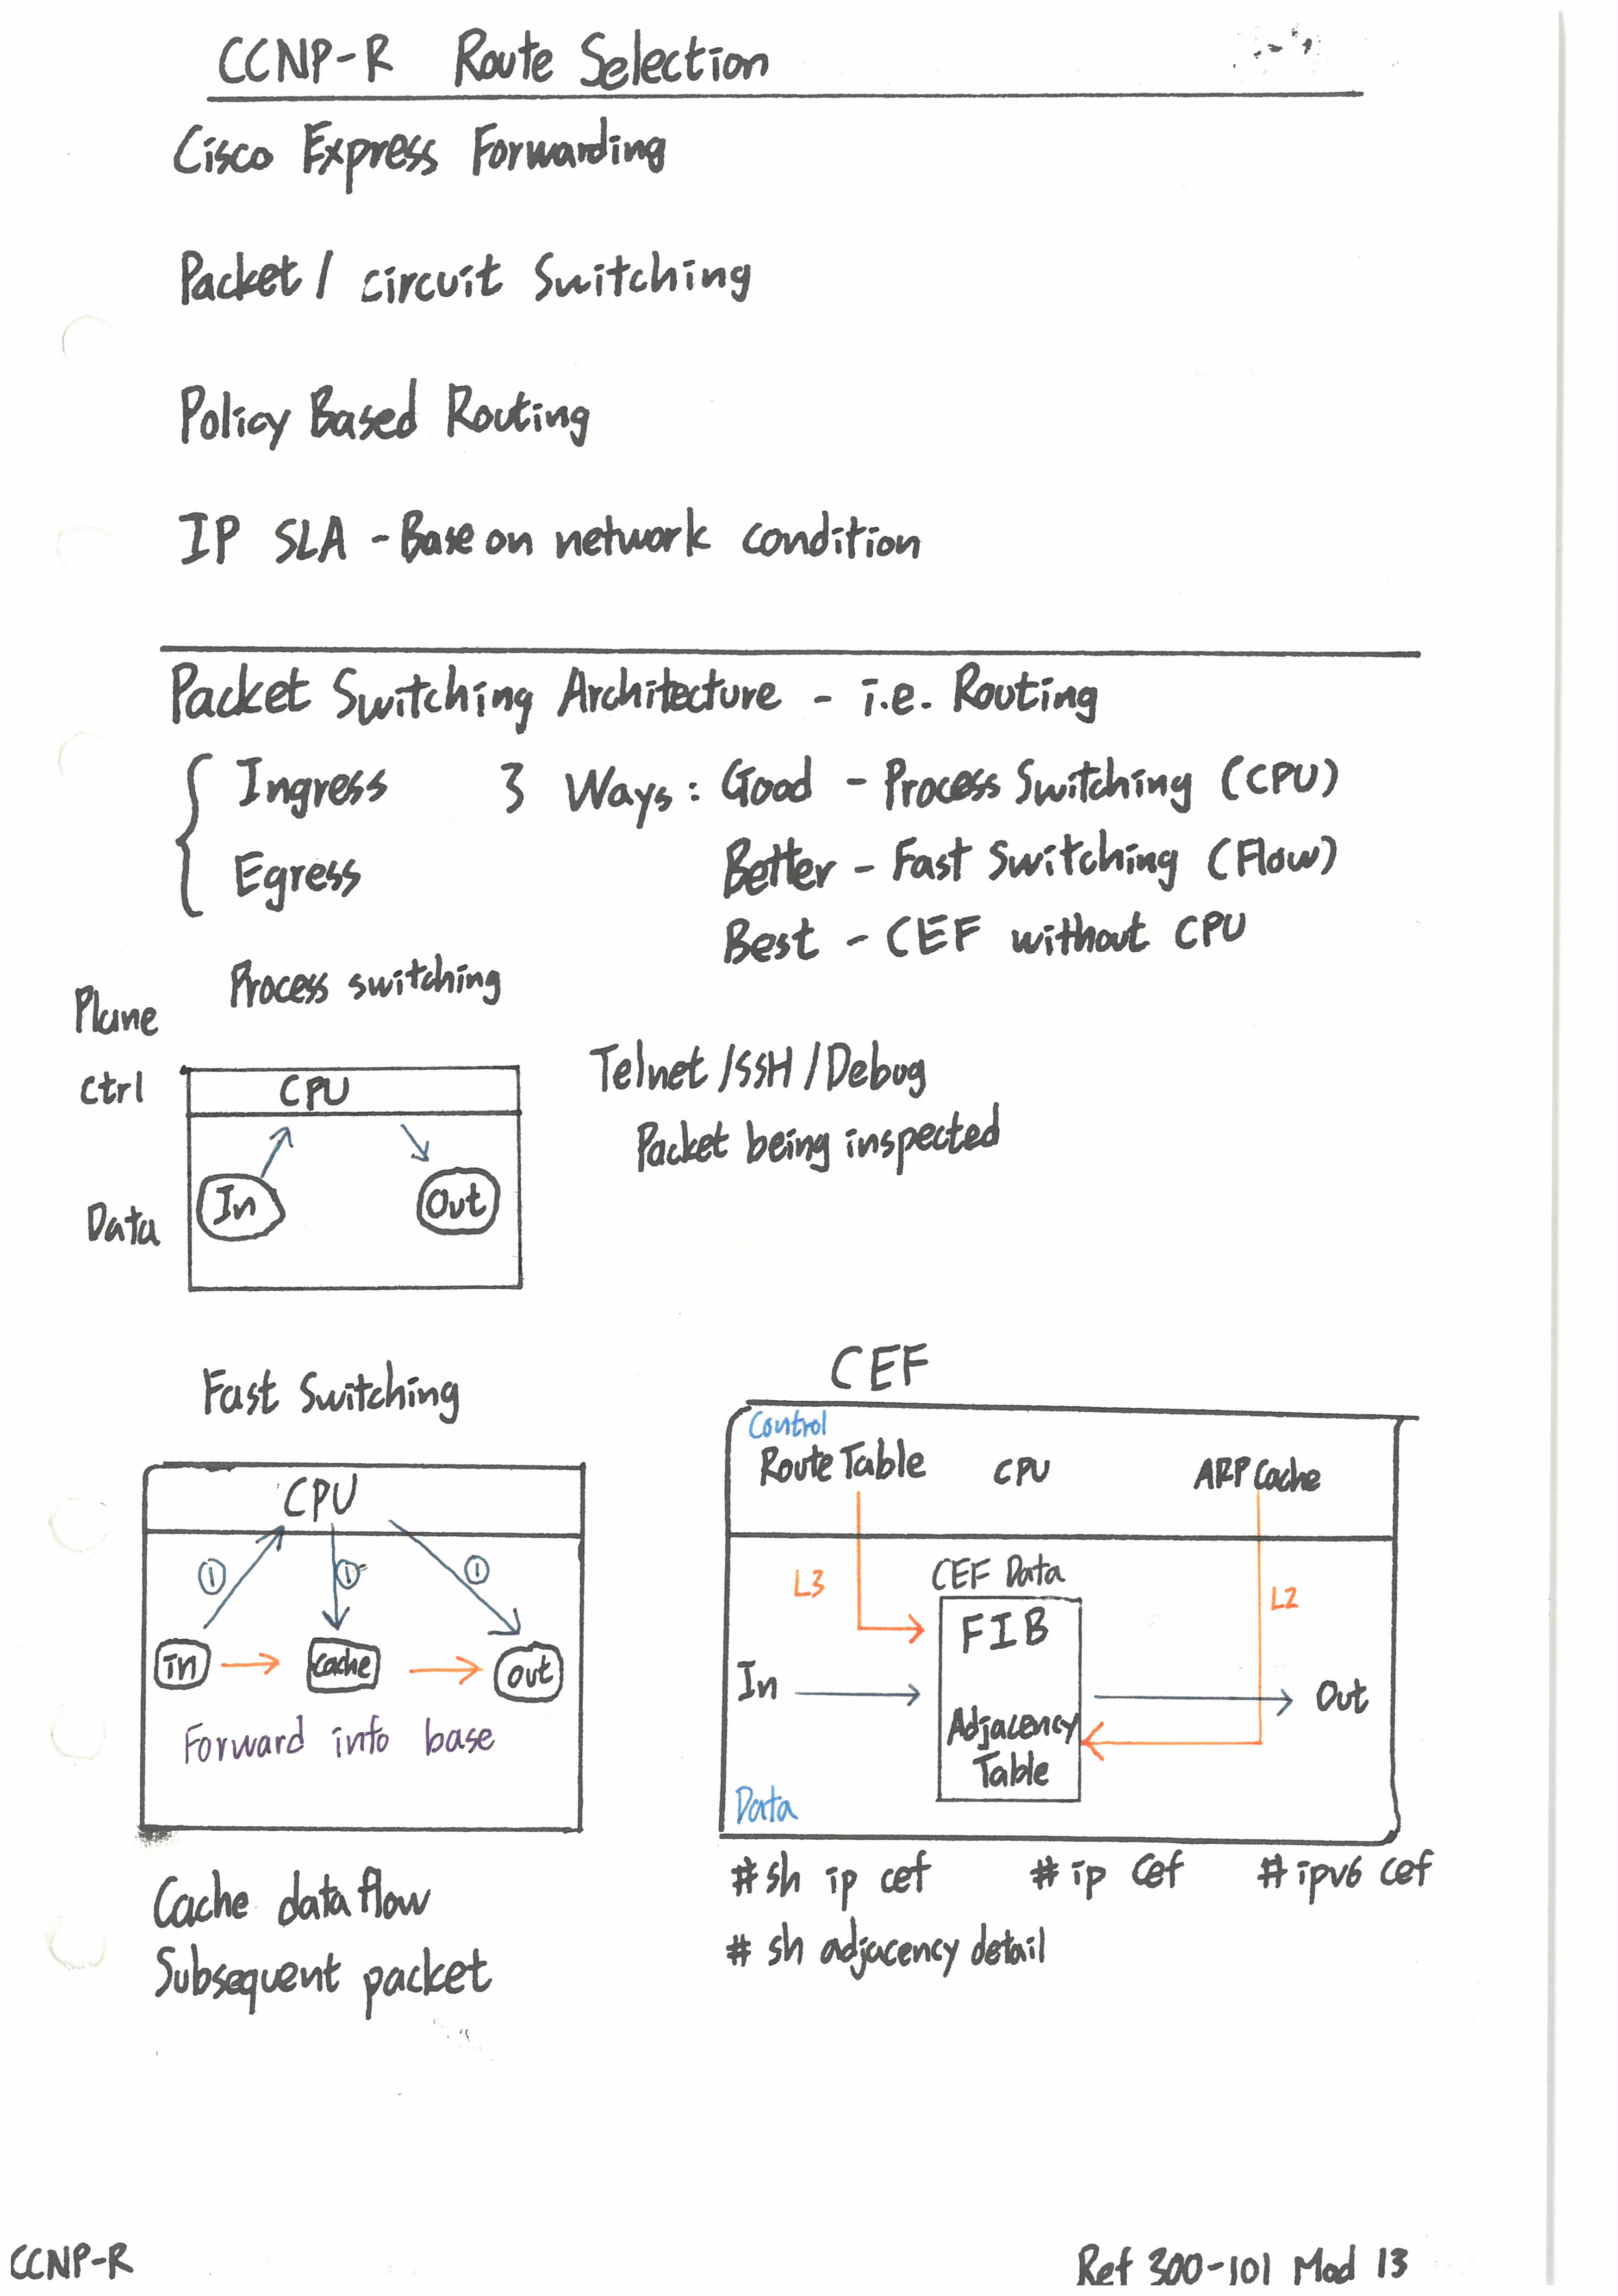 CCNP-R Route Selection
Cisco Express Forwarding
Packet / circuit Switching
Policy Based Routing
IP SLA - Base on network condition
Packet Switching Architecture - i.e. Routing
Ingress 3 Ways: Good - Process Switching (CPU)
Egress Better - Fast Switching (Flow)
Best - CEF without CPU
Process switching
Plane
Ctrl CPU
Telnet /SSH /Debug
Packet being inspected
Data In Out
Fast Switching
CPU
1 1 1
in cache out
Forward info base
Cache data flow
Subsequent packet
CEF
Control
Route Table CPU ARP Cache
L3 CEF Data L2
FIB
In Out
Adjacency
Table
Data
# sh ip cef # ip cef # ipv6 cef
# sh adjacency detail
CCNP-R Ref 300-101 Mod 13